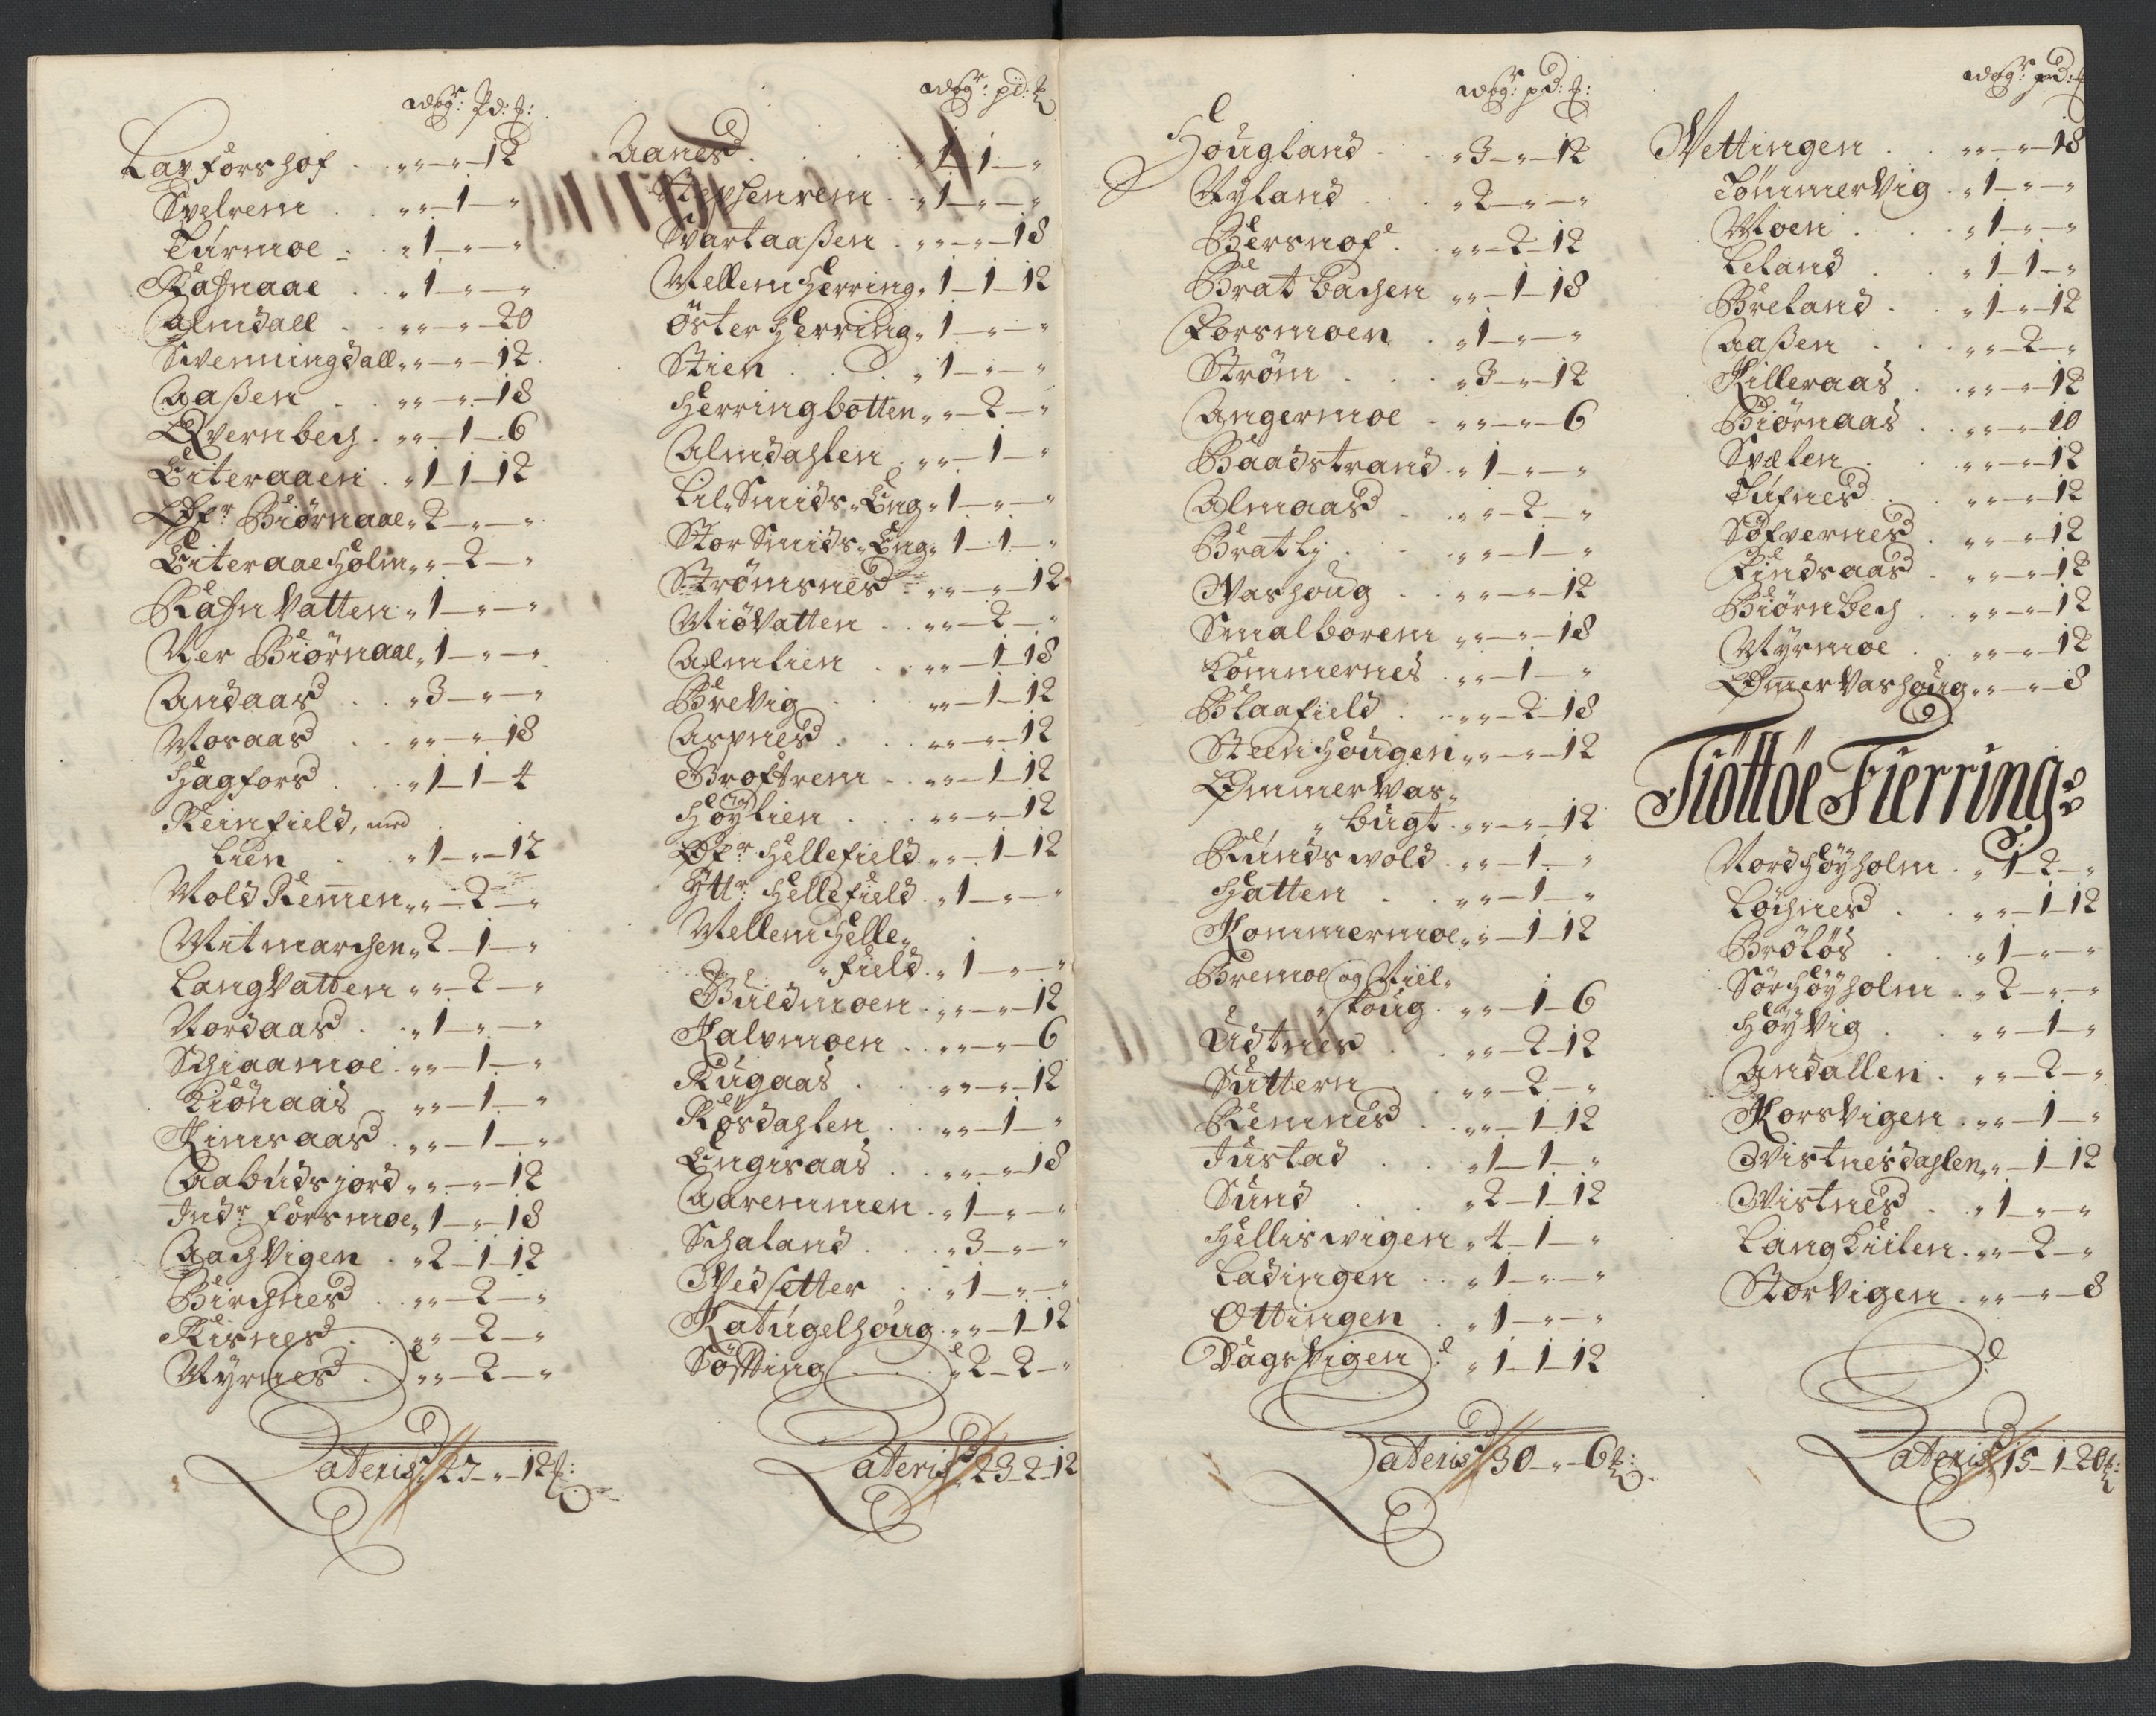 wog^r: Pd: ℔:
Laxforshof . . „ „ – „ – 12
Svelrem . . „ „ – 1 – „
Turmoe . . „ 1 – „ – „
Rafnaae . . „ 1 – „ – „
Almdall . . „ „ – „ – 20
Svenningdall „ „ – „ – 12
Aaßen . . „ „ – „ – 18
Qvernbech . „ „ – 1 – 6
Eiteraaen . „ 1 – 1 – 12
Øf^r Biörnaae „ 2 – „ – „
Eiteraaeholm „ „ – 2 – „
Rafn Vatten „ 1 – „ – „
Ner Biörnaae „ 1 – „ – „
Andaas . . „ 3 – „ – „
Mosaas . . „ „ – „ – 18
Hagfors . . „ 1 – 1 – 4
Reinfield, med
Lien . . „ 1 – „ – 12
Mold Remen „ „ – 2 – „
Mitmarchen „ 2 – 1 – „
LangVatten „ „ – 2 – „
Nordaas . . „ 1 – „ – „
Schiaamoe . „ „ – 1 – „
Kiönaas . . „ „ – 1 – „
Kimsaas . . „ „ – 1 – „
Aabudsjord „ „ – „ – 12
Ind^r forsmoe „ 1 – „ – 18
AachVigen . „ 2 – 1 – 12
Birchnes . . „ „ – 2 – „
Risnes . . „ „ – 2 – „
Myrnes . . „ „ – 2 – „
Lateris 27 – „ – 12 ℔:
wog^r: pd: ℔
Aanes . . . „ 1 – 1 – „
Steffenrem . „ 1 – „ – „
Svartaaßen . „ „ – „ – 18
Mellem Herring „ 1 – 1 – 12
Öster Herring „ 1 – „ – „
Stien . . . „ 1 – „ – „
Herringbotten „ „ – 2 – „
Almdahlen . „ „ – 1 – „
Lil Smids Eng „ 1 – „ – „
Stor Smids Eng „ 1 – 1 – „
Strömsnes . „ „ – „ – 12
MiöVatten . . „ „ – 2 – „
Almlien . . „ „ – 1 – 18
BreVig . . „ „ – 1 – 12
Aspnes . . „ „ – „ – 12
Broftrem . . „ „ – 1 – 12
Höylien . . „ „ – „ – 12
Øf^r Hellefield „ „ – 1 – 12
Ytt^r: Hellefield . „ 1 – „ – „
Mellem Helle„
„field . „ 1 – „ – „
Buldmoen . „ „ – „ – 12
Kalvmoen . „ „ – „ – 6
Rugaas . . „ „ – „ – 12
Røsdahlen . . „ „ – 1 – „
Engisaas . . „ „ – „ – 18
Aaremmen . „ 1 – „ – „
Schaland . . „ 3 – „ – „
Vedsetter . . „ 1 – „ – „
Katugelhoug . „ „ – 1 – 12
Söffting . . „ 2 – 2 – „
Lateris 23 – 2 – 12
wog^r: pd: ℔:
Hougland . . „ 3 – „ – 12
Ryland . . „ 2 – „ – „
Bersnof . . „ „ – 2 – 12
Brat bachen „ „ – 1 – 18
Forsmoen . „ 1 – „ – „
Ström . . . „ 3 – „ – 12
Angermoe . „ „ – „ – 6
Baadstrand . „ 1 – „ – „
Almaas . . „ „ – 2 – „
Bratli . . „ „ – 1 – „
Vashoug . . „ „ – „ – 12
Smalborem „ „ – „ – 18
Tommernes . „ „ – 1 – „
Blaafield . „ „ – 2 – 18
Steenhougen „ „ – „ – 12
ØmmerVas„
„ bugt . „ „ – „ – 12
Rundsvold . „ „ – 1 – „
Hatten . . „ „ – 1 – „
Kommermoe „ „ – 1 – 12
Bremoe og Miel„
„skoug . „ „ – 1 – 6
Udtnes . . „ „ – 2 – 12
Luttern . . „ „ – 2 – „
Remnes . . „ „ – 1 – 12
Justad . . „ 1 – 1 – „
Sund . . „ 2 – 1 – 12
Helliswigen „ 4 – 1 – „
Ladingen . . „ 1 – „ – „
Ottingen . . „ 1 – „ – „
DagsVigen . „ 1 – 1 – 12
Lateris 30 – „ – 6 ℔:
wog^r: pd: ℔
Nettingen . . „ „ – „ – 18
TömmerVig . „ 1 – „ – „
Moen . . „ 1 – „ – „
Leland . . „ 1 – 1 – „
Breland . . „ 1 – „ – 12
Aaßen . . „ „ – 2 – „
Killeraas . „ „ – „ – 12
Biörnaas . „ „ – „ – 20
Svelen . . „ „ – „ – 12
Tufnes . . „ „ – „ – 12
Søfvernes . „ „ – „ – 12
Findsaas . „ „ – „ – 12
Biörnbech . „ „ – „ – 12
Myrmoe . . „ „ – „ – 12
ØmmerVashoug „ „ – „ – 8
Tiöttöe Fierring:
Nordhöyholm . „ 1 – 2 – „
Löchnes . . „ „ – 1 – 12
Brölös . . „ 1 – „ – „
Sörhöyholm . „ 2 – „ – „
HöyVig . . „ „ – 1 – „
Andallen . „ „ – 2 – „
KorsVigen . „ „ – 1 – „
Vistnesdahlen „ „ – 1 – 12
Vistnes . . „ 1 – „ – „
Langkiilen . „ „ – 2 – „
StorVigen . „ „ – „ – 8
Lateris 15 – 1 – 20 ℔: